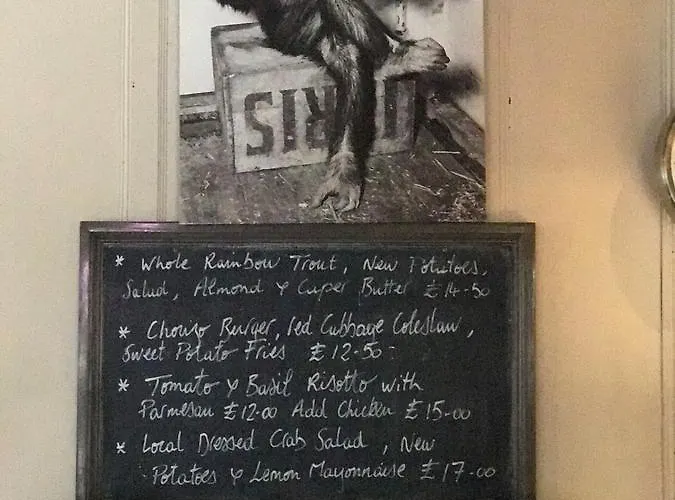 SIRIUS
* Whole Rainbow Trout, New Potatoes,
Salad, Almond & Caper Butter £14-50
* Chorizo Burger, red Cabbage Coleslaw,
Sweet Potato Fries £12-50
* Tomato & Basil Risotto with
Parmesan £12-00 Add Chicken £15-00
* Local Dressed Crab Salad, New
Potatoes & Lemon Mayonnaise £17-00